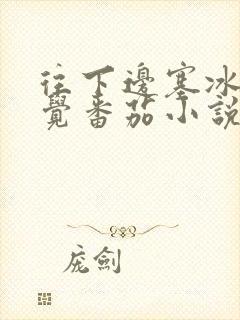 往下邊塞冰
覺番茄小說
庞劍